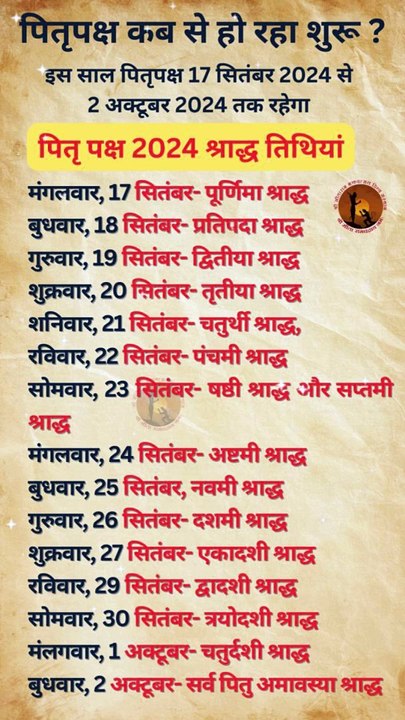 पितृपक्ष कब से हो रहा शुरू ?
इस साल पितृपक्ष 17 सितंबर 2024 से
2 अक्टूबर 2024 तक रहेगा
पितृ पक्ष 2024 श्राद्ध तिथियां
मंगलवार, 17 सितंबर- पूर्णिमा श्राद्ध
बुधवार, 18 सितंबर- प्रतिपदा श्राद्ध
गुरुवार, 19 सितंबर- द्वितीया श्राद्ध
शुक्रवार, 20 सितंबर- तृतीया श्राद्ध
शनिवार, 21 सितंबर- चतुर्थी श्राद्ध,
रविवार, 22 सितंबर- पंचमी श्राद्ध
सोमवार, 23 सितंबर- षष्ठी श्राद्ध और सप्तमी
श्राद्ध
मंगलवार, 24 सितंबर- अष्टमी श्राद्ध
बुधवार, 25 सितंबर, नवमी श्राद्ध
गुरुवार, 26 सितंबर- दशमी श्राद्ध
शुक्रवार, 27 सितंबर- एकादशी श्राद्ध
रविवार, 29 सितंबर- द्वादशी श्राद्ध
सोमवार, 30 सितंबर- त्रयोदशी श्राद्ध
मंलगवार, 1 अक्टूबर- चतुर्दशी श्राद्ध
बुधवार, 2 अक्टूबर- सर्व पितु अमावस्या श्राद्ध